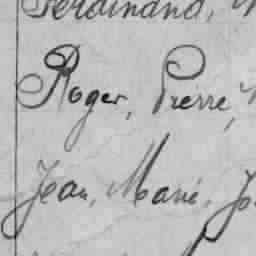 Ferdinand,
Roger, Pierre,
Jean, Marie, Jo